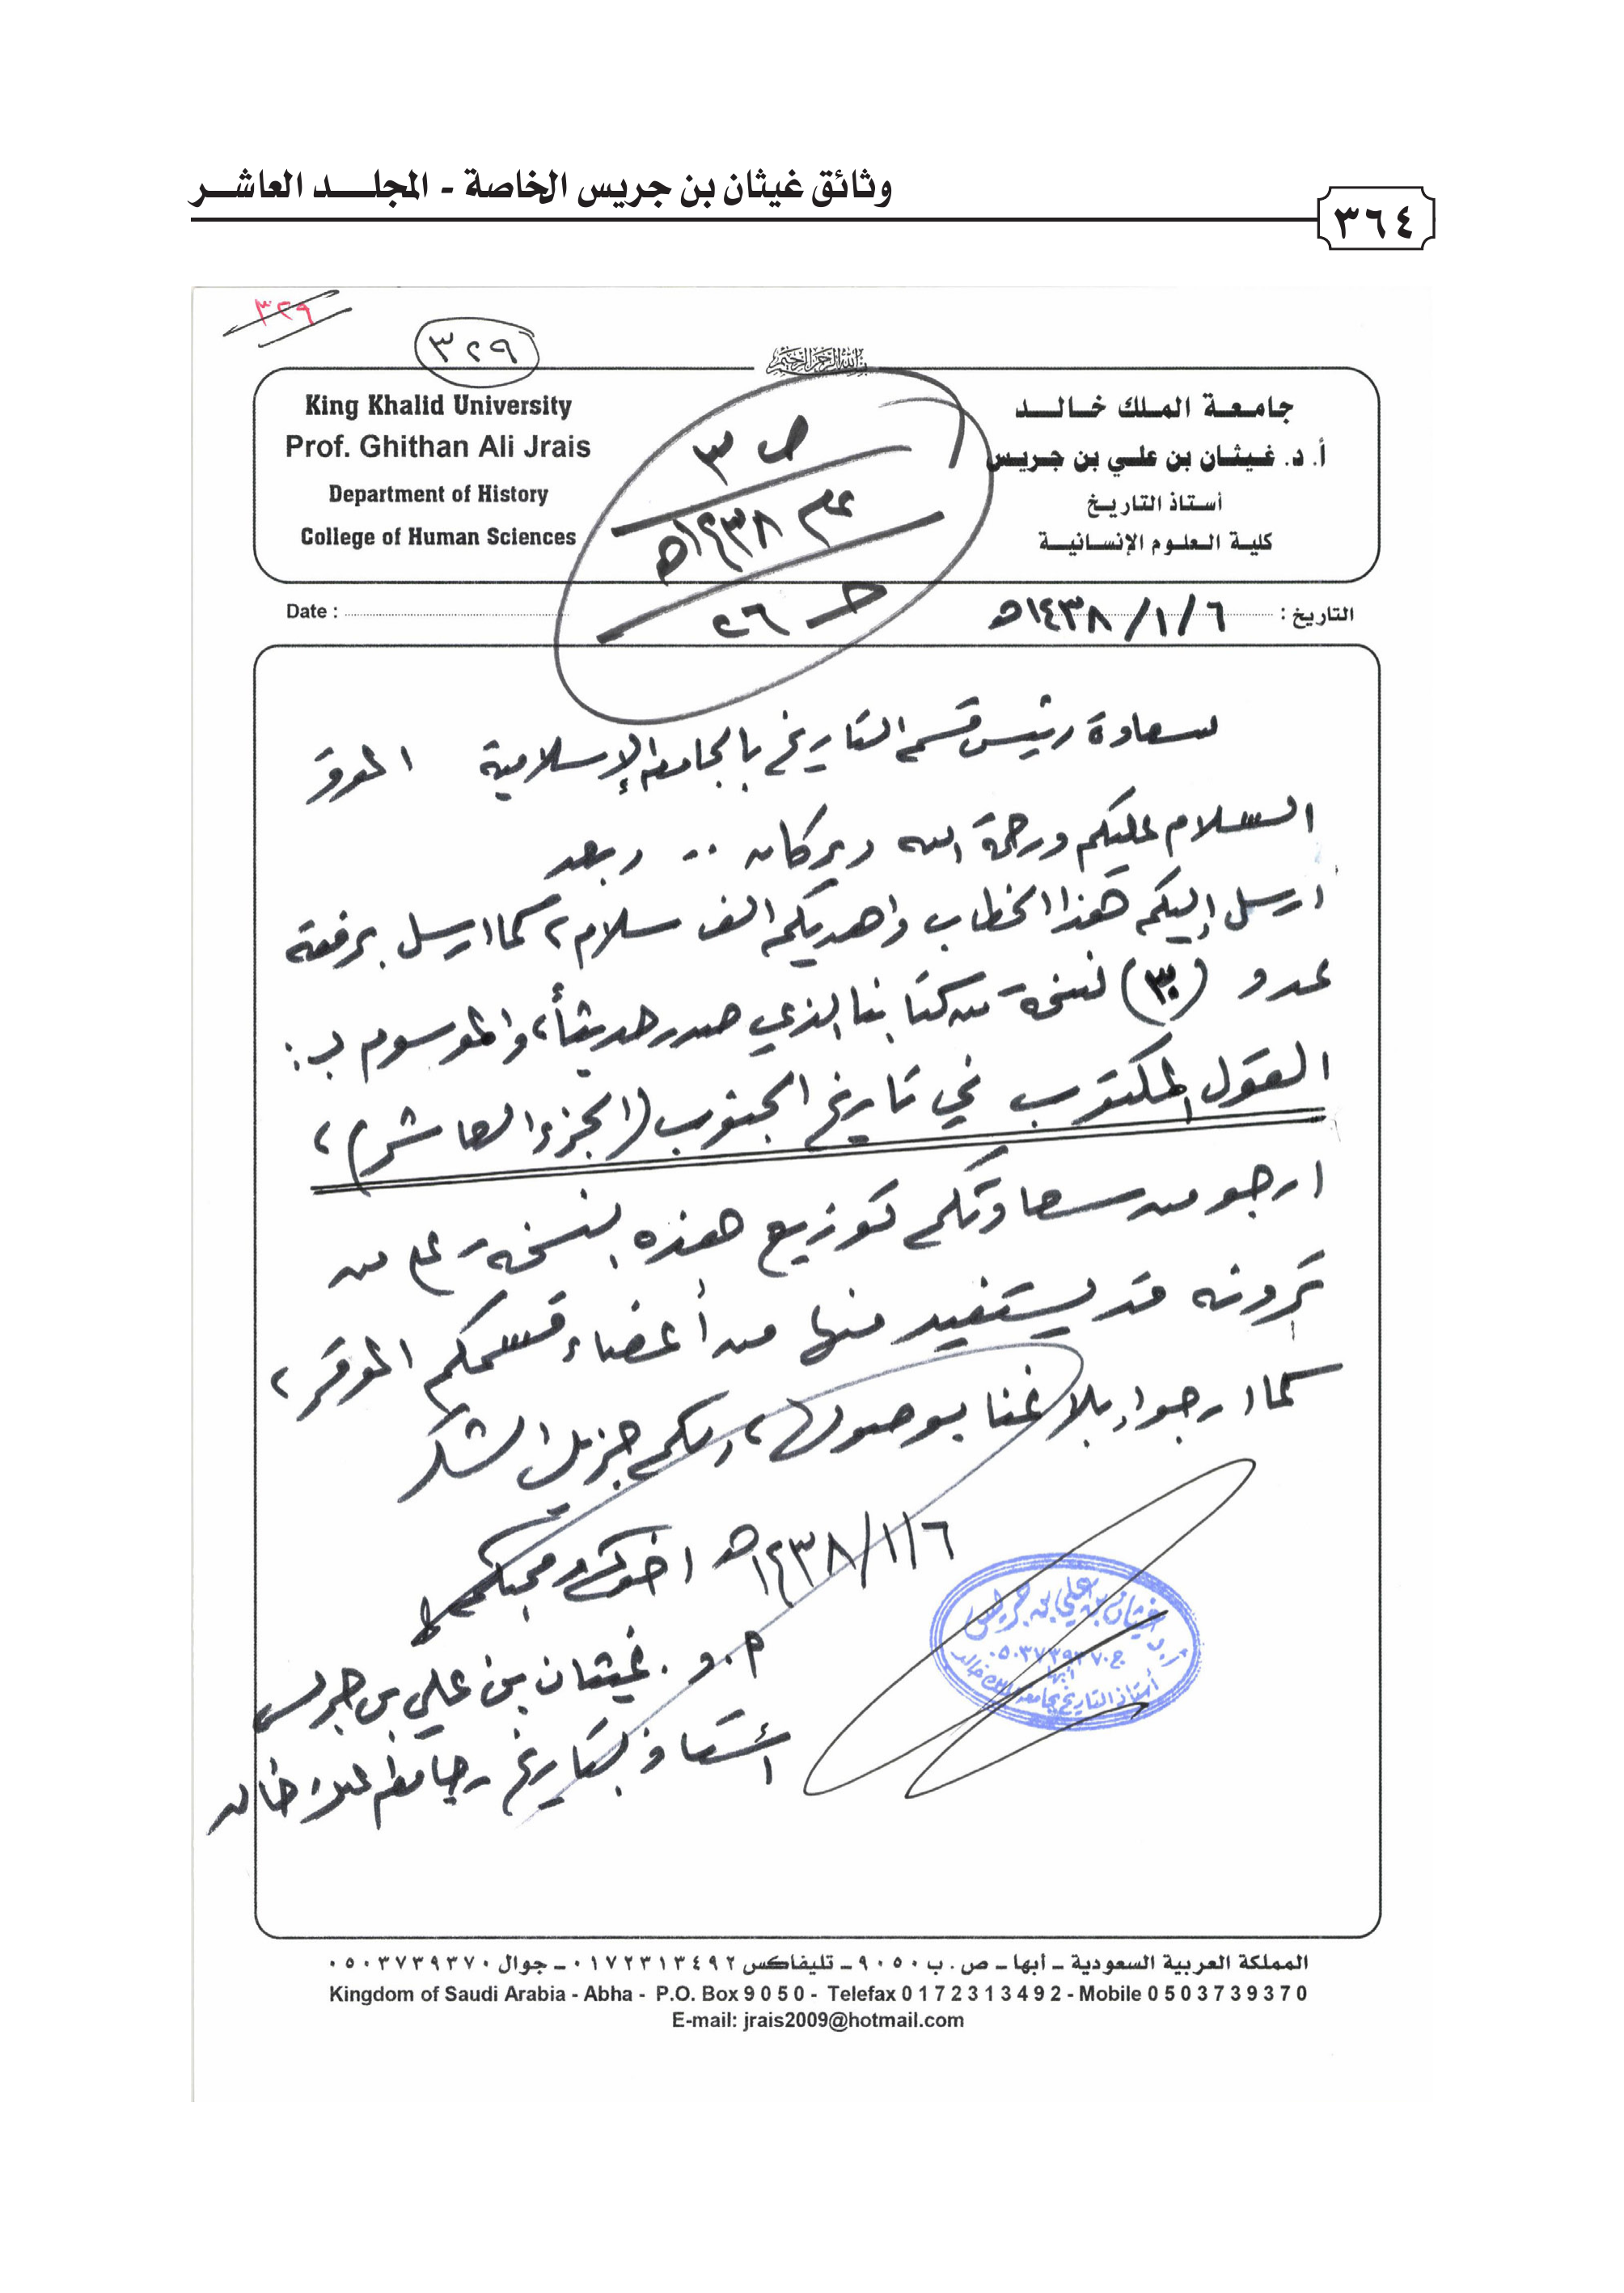 وثائق غيثان بن جريس الخاصة - المجلد العاشر
٣٦٤
٣٢٩
٣٢٩
بسم الله الرحمن الرحيم
King Khalid University
Prof. Ghithan Ali Jrais
Department of History
College of Human Sciences
جامعة الملك خالد
أ. د. غيثان بن علي بن جريس
أستاذ التاريخ
كلية العلوم الإنسانية
ص ٣
عام ١٤٣٨هـ
حـ ٢٦
Date :
التاريخ : ١٤٣٨/١/٦هـ
سعادة رئيس قسم التاريخ بالجامعة الإسلامية الموقر
السلام عليكم ورحمة الله وبركاته .. وبعد
ارسل إليكم هذا الخطاب واهديكم الف سلام، كما ارسل برفقة
عدد (٣٠) نسخة من كتابنا الذي صدر حديثاً، والموسوم بـ:
القول المكتوب في تاريخ الجنوب (الجزء العاشر)،
ارجو من سعادتكم توزيع هذه النسخة على من
ترونه قد يستفيد منها من أعضاء قسمكم الموقر،
كما ارجوا إبلاغنا بوصولها، ولكم جزيل الشكر
١٤٣٨/١/٦هـ اخوكم ومحبكم
أ.د. غيثان بن علي بن جريس
أستاذ التاريخ بجامعة الملك خالد
أ.د غيثان بن علي بن جريس
ج. ٠٥٠٣٧٣٩٣٧٠
أبها
أستاذ التاريخ بجامعة الملك خالد
المملكة العربية السعودية – أبها – ص . ب ٩٠٥٠ – تليفاكس ٠١٧٢٣١٣٤٩٢ – جوال ٠٥٠٣٧٣٩٣٧٠
Kingdom of Saudi Arabia - Abha - P.O. Box 9 0 5 0 - Telefax 0 1 7 2 3 1 3 4 9 2 - Mobile 0 5 0 3 7 3 9 3 7 0
E-mail: jrais2009@hotmail.com